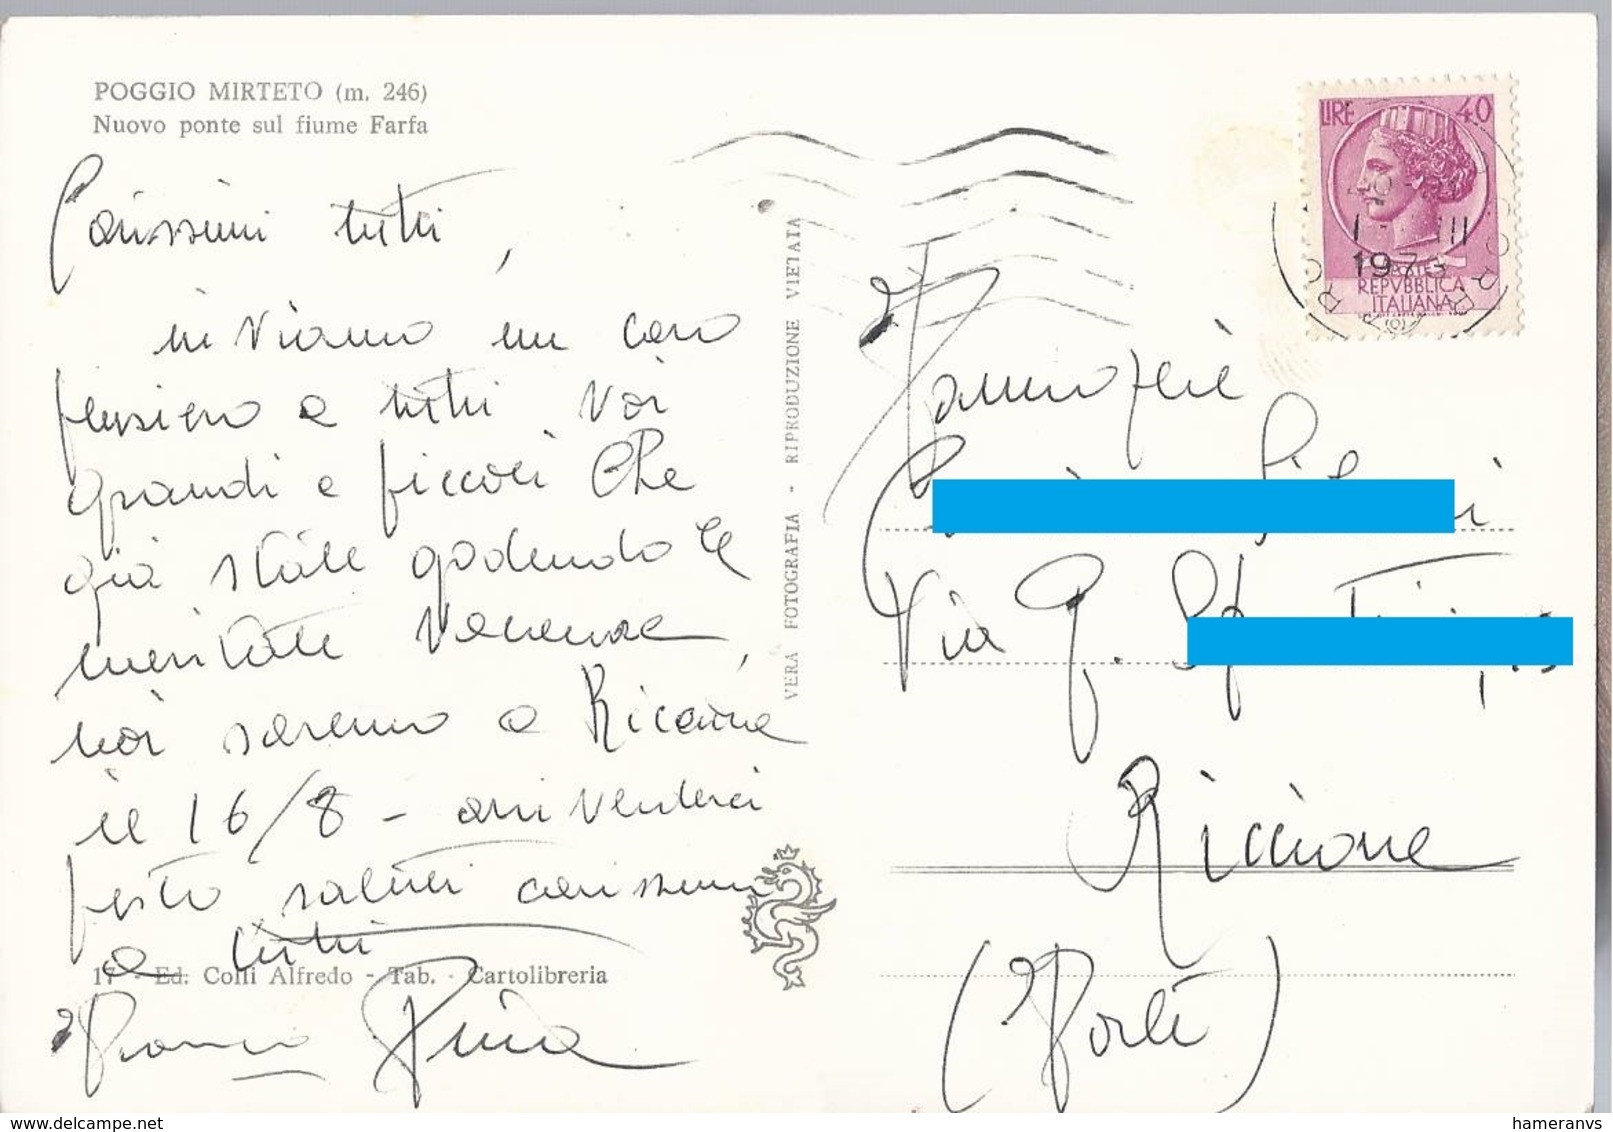 POGGIO MIRTETO (m. 246)
Nuovo ponte sul fiume Farfa
Carissimi tutti,
inviamo un caro
pensiero a tutti voi
grandi e piccoli che
già state godendo le
meritate vacanze,
noi saremo a Riccione
il 16/8 - arrivederci
presto saluti carissimi
a tutti
17 - Ed. Colli Alfredo - Tab. - Cartolibreria
Franco Pina
VERA FOTOGRAFIA - RIPRODUZIONE VIETATA
LIRE 40
1973
REPVBBLICA
ITALIANA
Fam
Via G.
Riccione
(Forlì)
hameranvs
www.delcampe.net